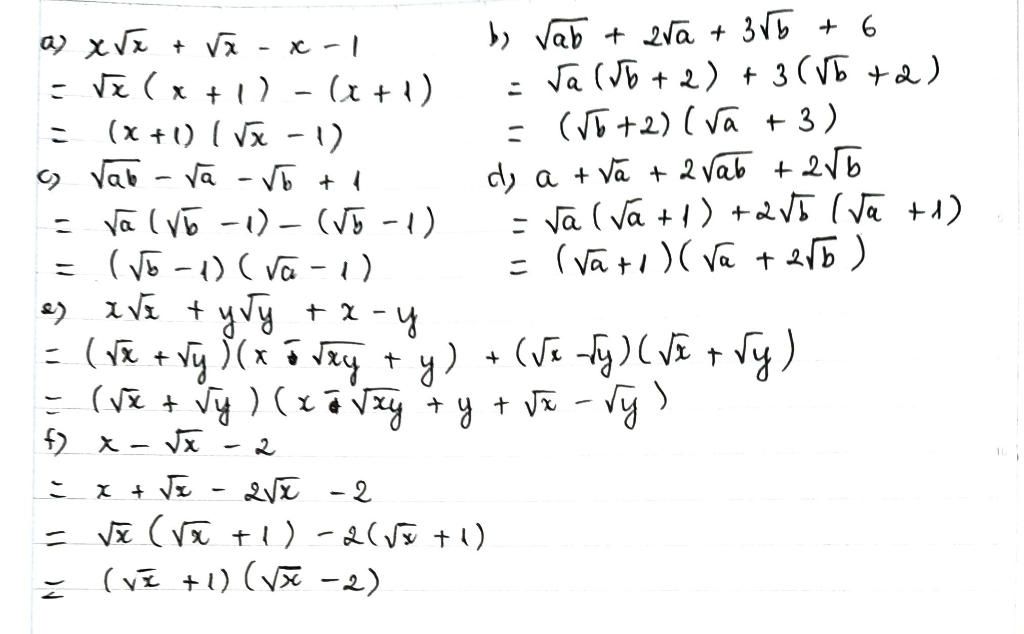 a) x√x + √x - x - 1
= √x ( x + 1 ) - (x + 1)
= (x+1) ( √x - 1)
b) √ab + 2√a + 3√b + 6
= √a (√b + 2) + 3 (√b + 2)
= (√b + 2) (√a + 3)
c) √ab - √a - √b + 1
= √a (√b - 1) - (√b - 1)
= (√b - 1) (√a - 1)
d) a + √a + 2√ab + 2√b
= √a (√a + 1) + 2√b (√a + 1)
= (√a + 1) (√a + 2√b)
e) x√x + y√y + x - y
= (√x + √y) (x - √xy + y) + (√x - √y) (√x + √y)
= (√x + √y) (x - √xy + y + √x - √y)
f) x - √x - 2
= x + √x - 2√x - 2
= √x (√x + 1) - 2(√x + 1)
= (√x + 1) (√x - 2)